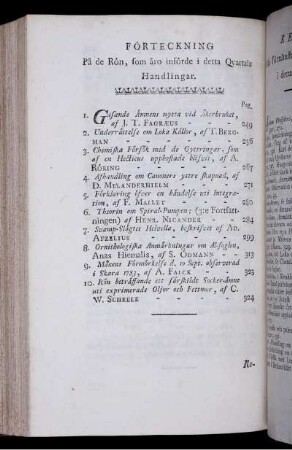 FÖRTECKNING
På de Rön, som äro införde i detta Qvartals
Handlingar.
Pag.
1. Gifande Ämnens nytta vid Åkerbruket,
af J. T. FAGRÆUS - - 249
2. Underrättelse om Loka Källor, af T. BERG-
MAN - - - 256
3. Chemiska Försök med de Qvarringar, som
af en Hafticus upphostade blifvit, af A.
RÖRING - - - 267
4. Afhandling om Cometers yttre skapnad, af
D. MELANDERHIELM - - 271
5. Förklaring öfver en händelse uti integra-
tion, af F. MALLET - - 280
6. Theorin om Spiral-Pumpen; (3:e Fortsätt-
ningen) af HENR. NICANDER - 284
7. Svamp-Slägtet Helvella, beskrifvit af AD.
AFZELIUS - - - 299
8. Ornithologiska Anmärkningar om Alfogeln,
Anas Hiemalis, af S. ÖDMANN - 313
9. Månens Förmörkelse d. 10 Sept. observerad
i Skara 1783, af A. FALCK - 323
10. Rön beträffande ett särskildt Socker-ämne
uti exprimerade Oljor och Fettmor, af C.
W. SCHEELE - - - 324
Re-